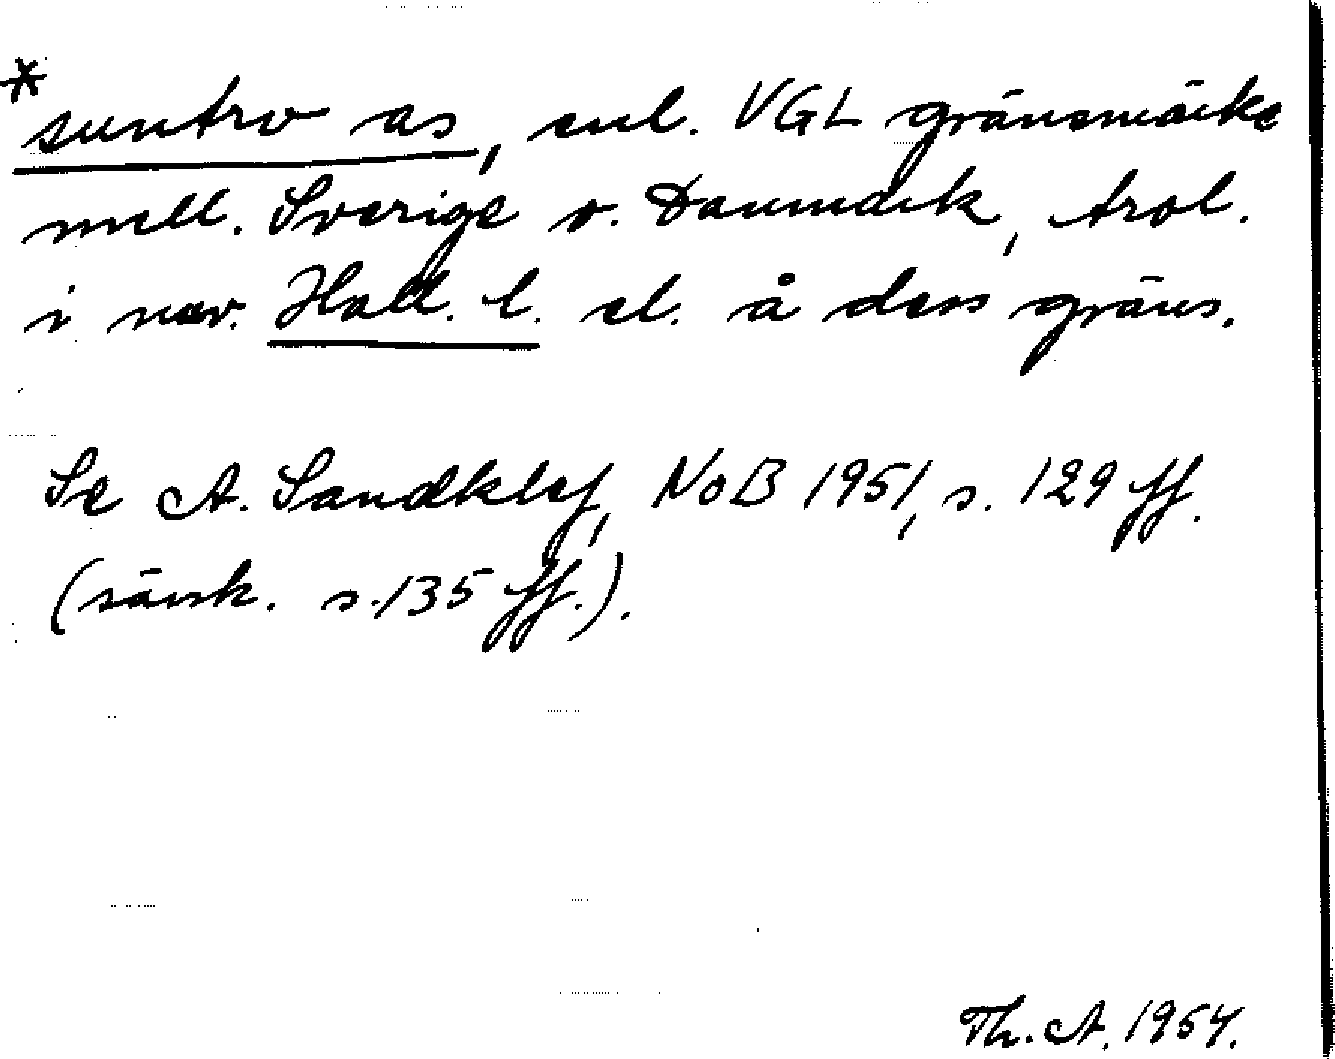 * suntro as, enl. VGL gränsmärke
mell. Sverige o. Danmark, trol.
i nuv. Hall. l. el. å dess gräns.
Se A. Sandklef, NoB 1951, s. 129 ff.
(särsk. s. 135 ff.).
Th. A. 1954.